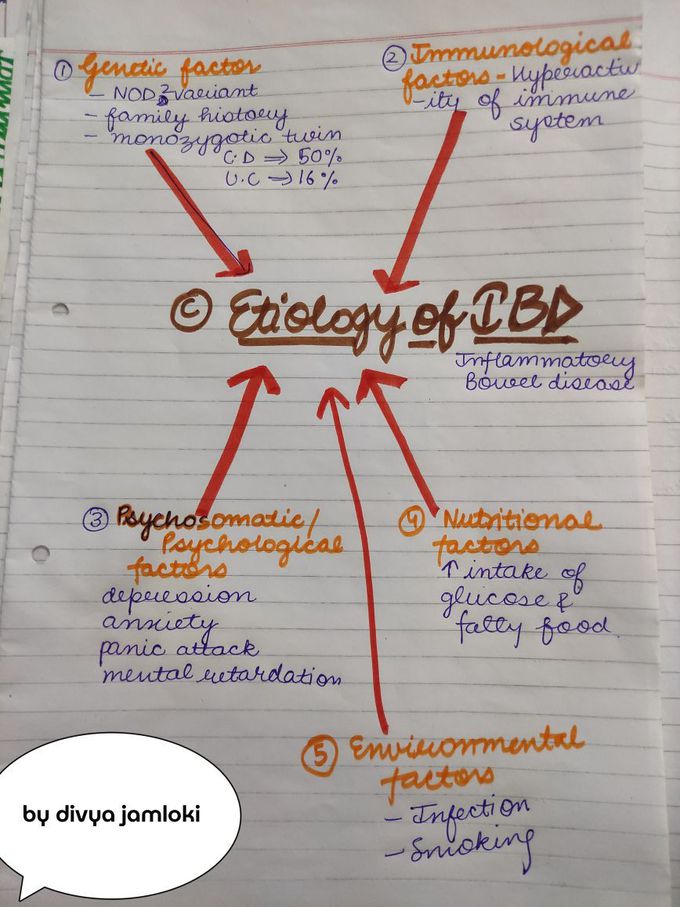 ① Genetic factor
- NOD2 variant
- family history
- monozygotic twin
C.D ⇒ 50%
U.C → 16%
② Immunological
factors - Hyperactiv
-ity of immune
system
© Etiology of IBD
Inflammatory
Bowel disease
③ Psychosomatic/
Psychological
factors
depression
anxiety
panic attack
mental retardation
④ Nutritional
factors
↑ intake of
glucose &
fatty food.
⑤ Environmental
factors
- Infection
- Smoking
by divya jamloki